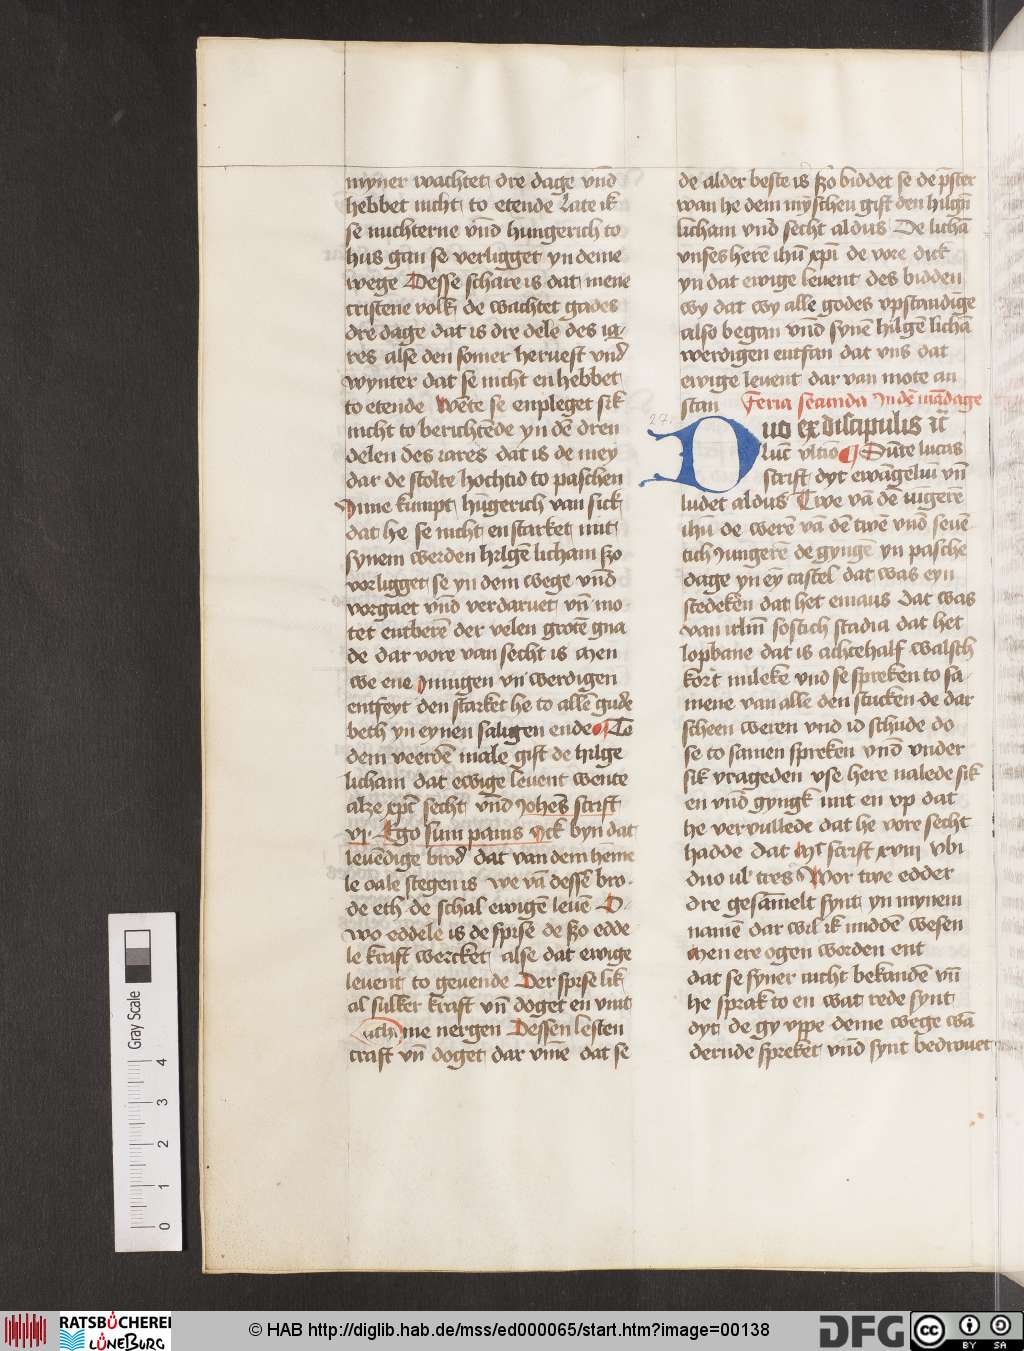 myner wachtet dre dage vnd
hebbet nicht to etende Late ik
se nuchterne vnd hungerich to
hus gan se verligget yn deme
wege Desse schare is dat mene
cristene volk de wachtet gades
dre dage dat is dre dele des ia-
res alse den somer heruest vnd
wynter dat se nicht en hebbet
to etende Wēte se enpleget sik
nicht to berichtēde yn dē dren
delen des iares dat is de mey
dar de stolte hochtid to paschen
Inne kumpt hūgerich van sick
dat he se nicht en starket mit
synem werden hilgē licham szo
vorligget se yn dem wege vnd
vorgaet vnd verdaruet vn̄ mo
tet entberē der velen grotē gna
de dar vore van secht is Men
we ene Innigen vn̄ werdigen
entfeyt den starket he to allē gude
beth yn eynen saligen ende To
dem veerdē male gift de hilge
licham dat ewige leuent wente
alze xpc̄ secht vnd Johēs scrift
vi Ego sum panis Ick byn dat
leuēdige brod dat van dem hēme
le dale stegen is we vā dessē bro-
de eth de schal ewigē leuē O-
wo eddele is de spise de szo edde
le kraft wercket alse dat ewige
leuent to geuende Der spise lik
al sulker kraft vn̄ doget en vint
ichme nergen Dessen lesten
craft vn̄ doget dar vm̄e dat se
de alder beste is szo biddet se de p̄ster
wan he dem mȳschen gift den hilgn̄
licham vnd secht aldus De lichā
vnses herē ihū xpī de vore dick
yn dat ewige leuent des bidden
wy dat wy alle godes vpstandīge
also began vnd synē hilgē lichā
werdigen entfan dat vns dat
ewige leuent dar van mote an
stan Feria secunda In dē mādage
27.
Duo ex discipulis ic̄
luc̄ vltio Sūte lucas
scrift dyt ewāgeliū vn̄
ludet aldus Twe vā dē iūgerē
ihū de werē vā dē twē vnd seuē
tich Jungerē de gyngē yn pasche
dage yn eȳ castel dat was eyn
stedekēn dat het emaus Dat was
van irlm̄ sostich stadia dat het
lopbane dat is achtehalf walsch
kort mileke vnd se spreken to sa-
mene van alle den stucken de dar
scheen weren vnd id schude do
se to samen spreken vnd vnder
sik vrageden vse here nalede sik
en vnd gyngk mit en vp dat
he vervullede dat he vore secht
hadde dat Mt̄ scrift xviii vbi
duo ul tres Wor twe edder
dre gesāmelt synt yn mynem
namē dar wil ik middē wesen
Men ere ogen worden ent
dat se syner nicht bekandē vn̄
he sprak to en wat rede synt
dyt de gy vppe deme wege wā
dernde spreket vnd synt bedrouet
Gray Scale
4
3
2
1
0
RATSBÜCHEREI
LÜNEBURG
© HAB http://diglib.hab.de/mss/ed000065/start.htm?image=00138
DFG
cc
BY SA